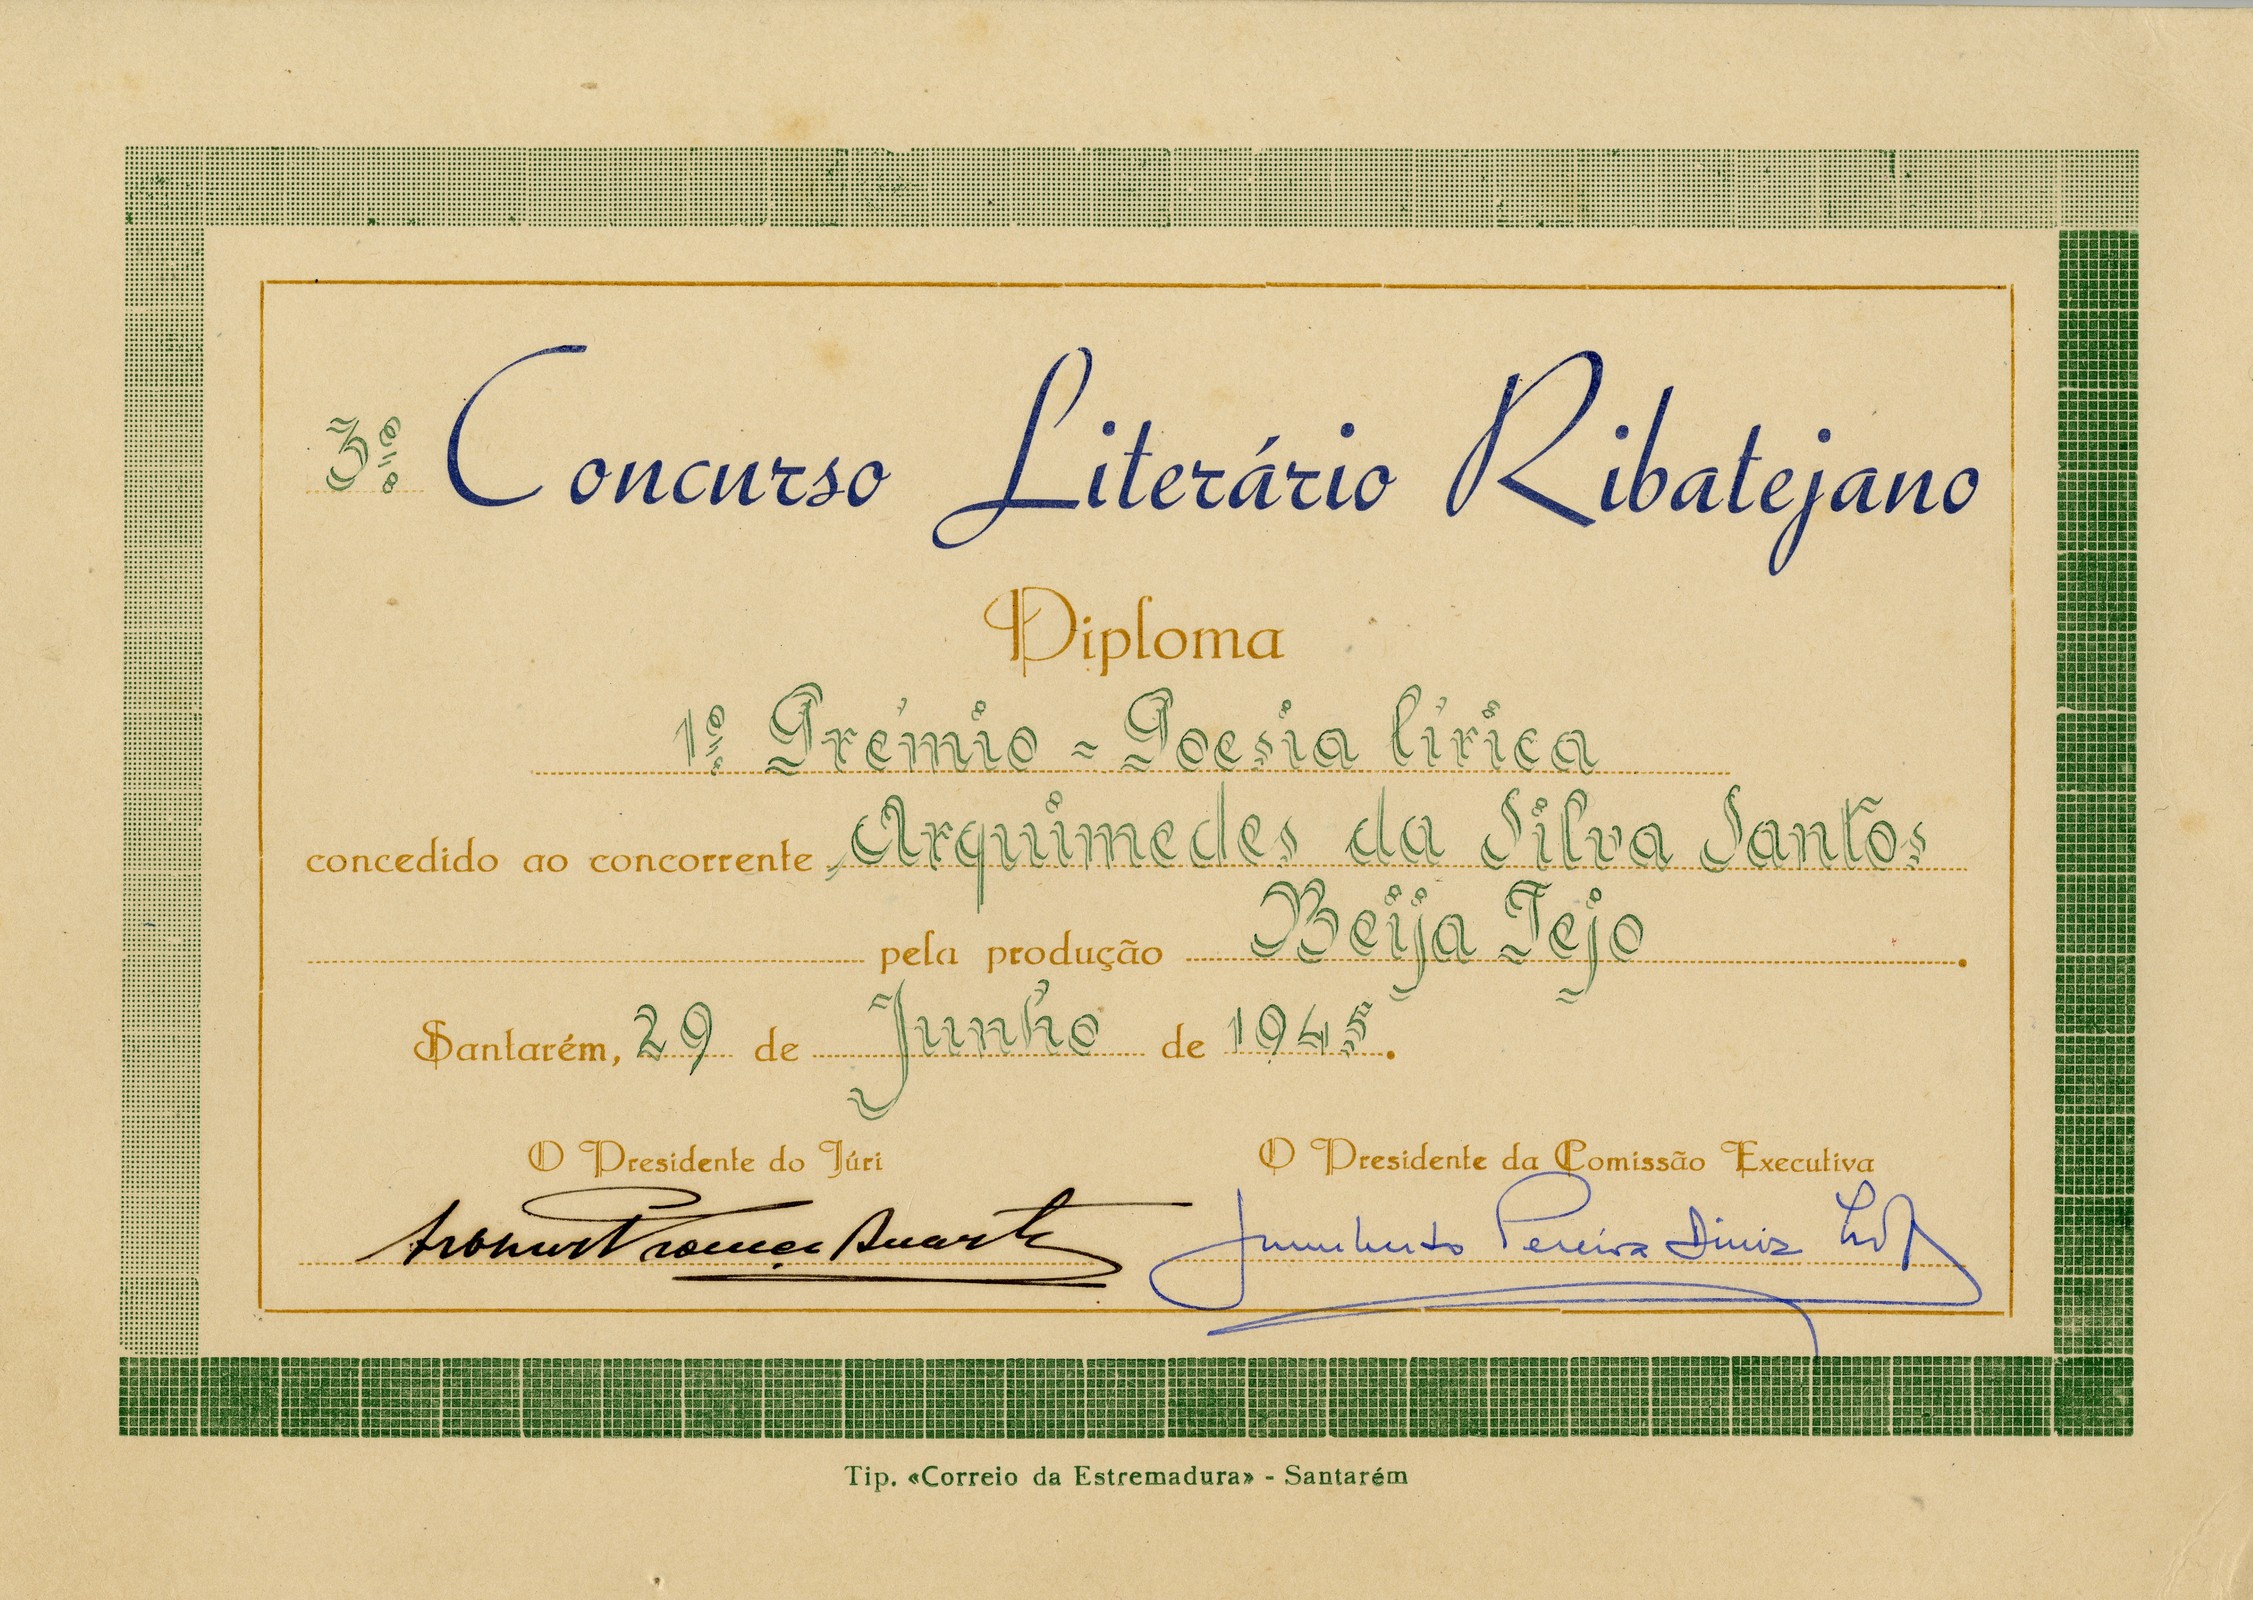 3º Concurso Literário Ribatejano
Diploma
1º Prémio - Poesia lírica
concedido ao concorrente, Arquimedes da Silva Santos
pela produção Beija Tejo.
Santarém, 29 de Junho de 1945.
O Presidente do Júri O Presidente da Comissão Executiva
Duarte Humberto Pereira Diniz
Tip. «Correio da Estremadura» - Santarém